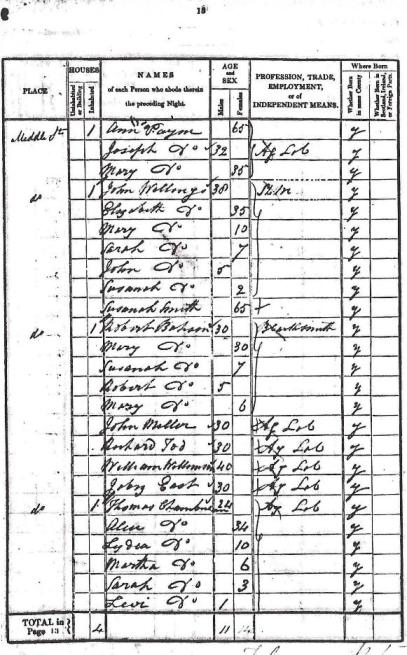 13
PLACE HOUSES NAMES of each Person who abode therein the preceding Night. AGE and SEX PROFESSION, TRADE, EMPLOYMENT, or of INDEPENDENT MEANS. Where Born
Uninhabited or Building Inhabited Males Females Whether Born in same County Whether Born in Scotland, Ireland, or Foreign Parts.
Middle St 1 Ann 65 y
Joseph Do 32 Ag Lab y
Mary Do 35 y
do 1 John 38 y
Elizabeth Do 35 y
Mary Do 10 y
Sarah Do 7 y
John Do 5 y
Susanah Do 2 y
Susanah Smith 65 y
do 1 Robert 30 Blacksmith y
Mary Do 30 y
Susanah Do 7 y
Robert Do 5 y
Mary Do 6 y
John Miller 30 Ag Lab y
Richard Tod 30 Ag Lab y
William 40 Ag Lab y
East 30 Ag Lab y
do 1 Thomas 24 Ag Lab y
Do 34 y
Lydia Do 10 y
Martha Do 6 y
Sarah Do 3 y
Levi Do 1 y
TOTAL in Page 13 4 11 14